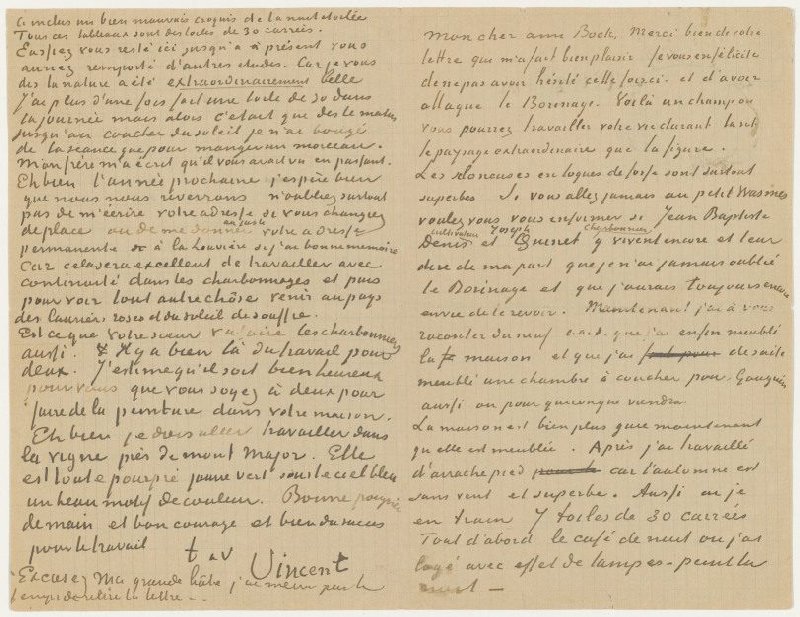 Ci inclus un bien mauvais croquis de la nuit etoilée
Tous ces tableaux sont des toiles de 30 carrées.
Eussiez vous resté ici jusqu'à à présent vous
auriez remporté d'autres etudes. Car je vous
dis la nature a été extraordinairement belle
J'ai plus d'une fois fait une toile de 30 dans
la journée mais alors c'etait que dès le matin
jusqu'au coucher du soleil je n'ai bougé
de la séance que pour manger un morceau.
Mon frère m'a écrit qu'il vous avait vu en passant.
Eh bien l'année prochaine j'espère bien
que nous nous reverrons n'oubliez surtout
pas de m'écrire votre adresse si vous changez
de place ou de me donner votre adresse
au juste
permanente à la Louvière si j'ai bonne mémoire
Car cela sera excellent de travailler avec
continuité dans les charbonnages et puis
pour voir tout autre chôse venir au pays
des lauriers roses et du soleil de souffre.
Est ce que votre soeur va faire les charbonniers
aussi. Il y a bien là du travail pour
deux. J'estime qu'il soit bien heureux
pour vous que vous soyez à deux pour
faire de la peinture dans votre maison.
Eh bien je dois aller travailler dans
la vigne près de mont Major. Elle
est toute pourpre jaune vert sous le ciel bleu
un beau motif de couleur. Bonne poignée
de main et bon courage et bien du succès
pour le travail
t. à v
Vincent
Excusez ma grande hâte j'ai meme pas le
temps de relire la lettre. —
mon cher ami Boch, Merci bien de votre
lettre qui m'a fait bien plaisir je vous en félicite
de ne pas avoir hésité cette fois ci et d'avoir
attaqué le Borinage. Voilà un champ ou
vous pourrez travailler votre vie durant tant
le paysage extraordinaire que la figure.
Les scloneuses en loques de fosse sont surtout
superbes Si vous allez jamais au petit Wasmes
voulez vous vous informer si Jean Baptiste
cultivateur Joseph charbonnier
Denis et Quinet y vivent encore et leur
dire de ma part que je n'ai jamais oublié
le Borinage et que j'aurais toujours encore
envie de le revoir. Maintenant j'ai à vous
raconter du neuf c.a.d. que j'ai enfin meublé
la maison et que j'ai de suite
meublé une chambre à coucher pour Gauguin
aussi ou pour quiconque viendra
La maison est bien plus gaie maintenant
qu'elle est meublée. Après j'ai travaillé
d'arrache pied car l'automne est
sans vent et superbe. Aussi ai je
en train 7 toiles de 30 carrées
Tout d'abord le café de nuit ou j'ai
logé avec effet de lampes - peint la
nuit —